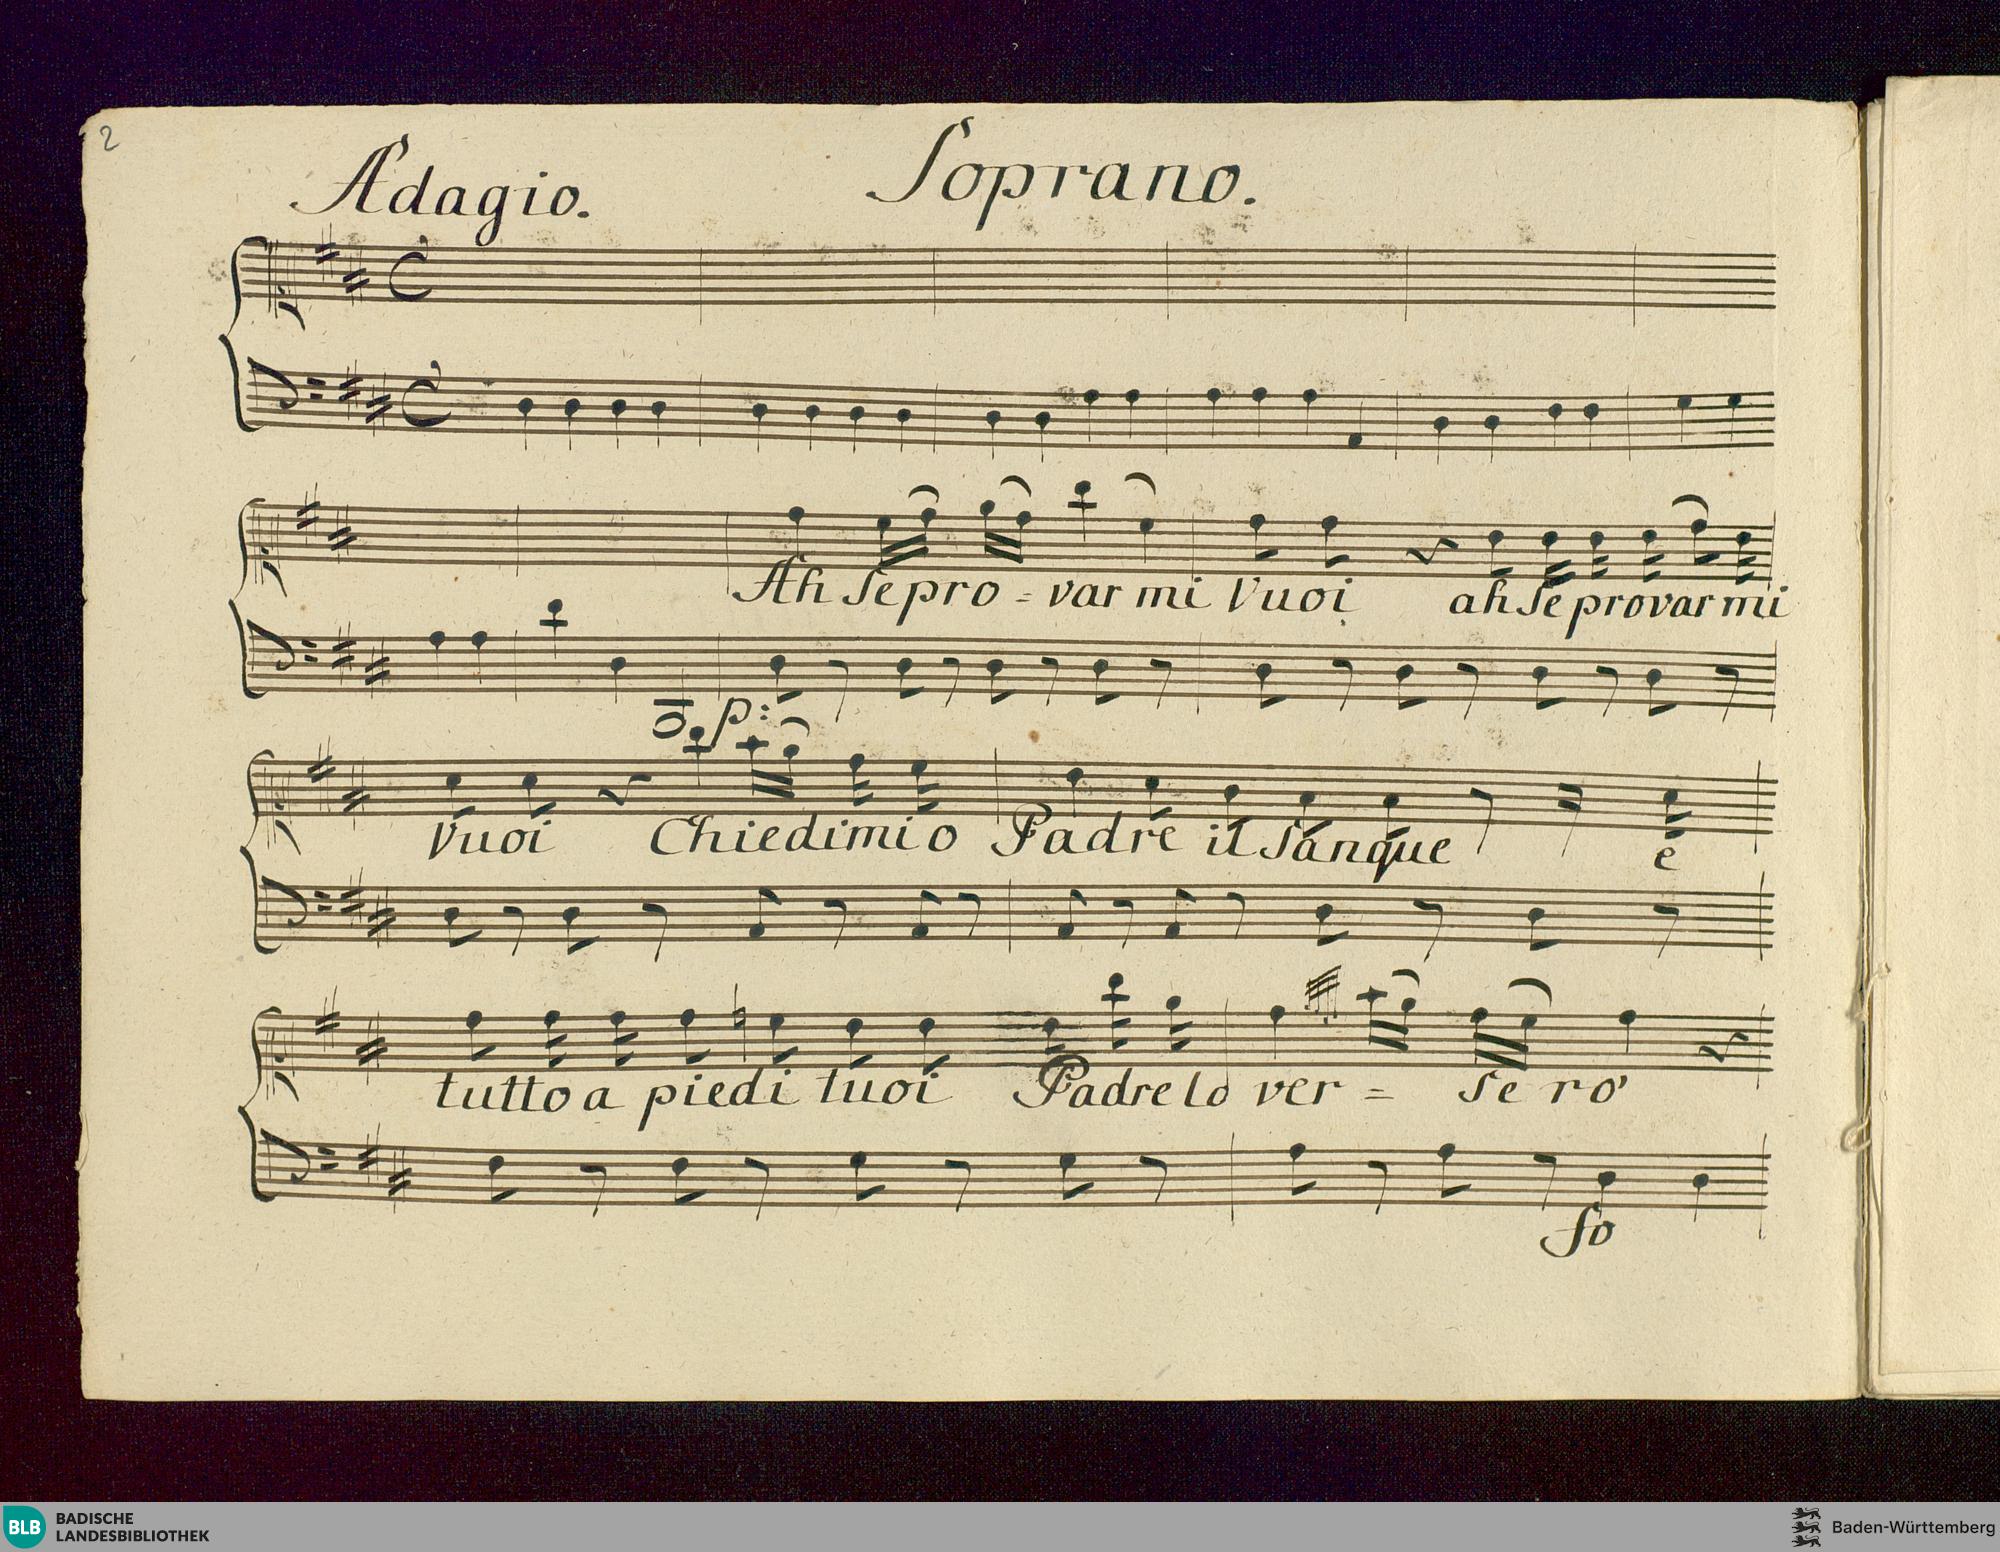 2
Adagio.
Soprano.
Ah se pro = var mi Vuoi ah se provar mi
p:
Vuoi Chiedimi o Padre il sangue e
tutto a piedi tuoi Padre lo ver = se rò
fo
BLB BADISCHE
LANDESBIBLIOTHEK
Baden-Württemberg